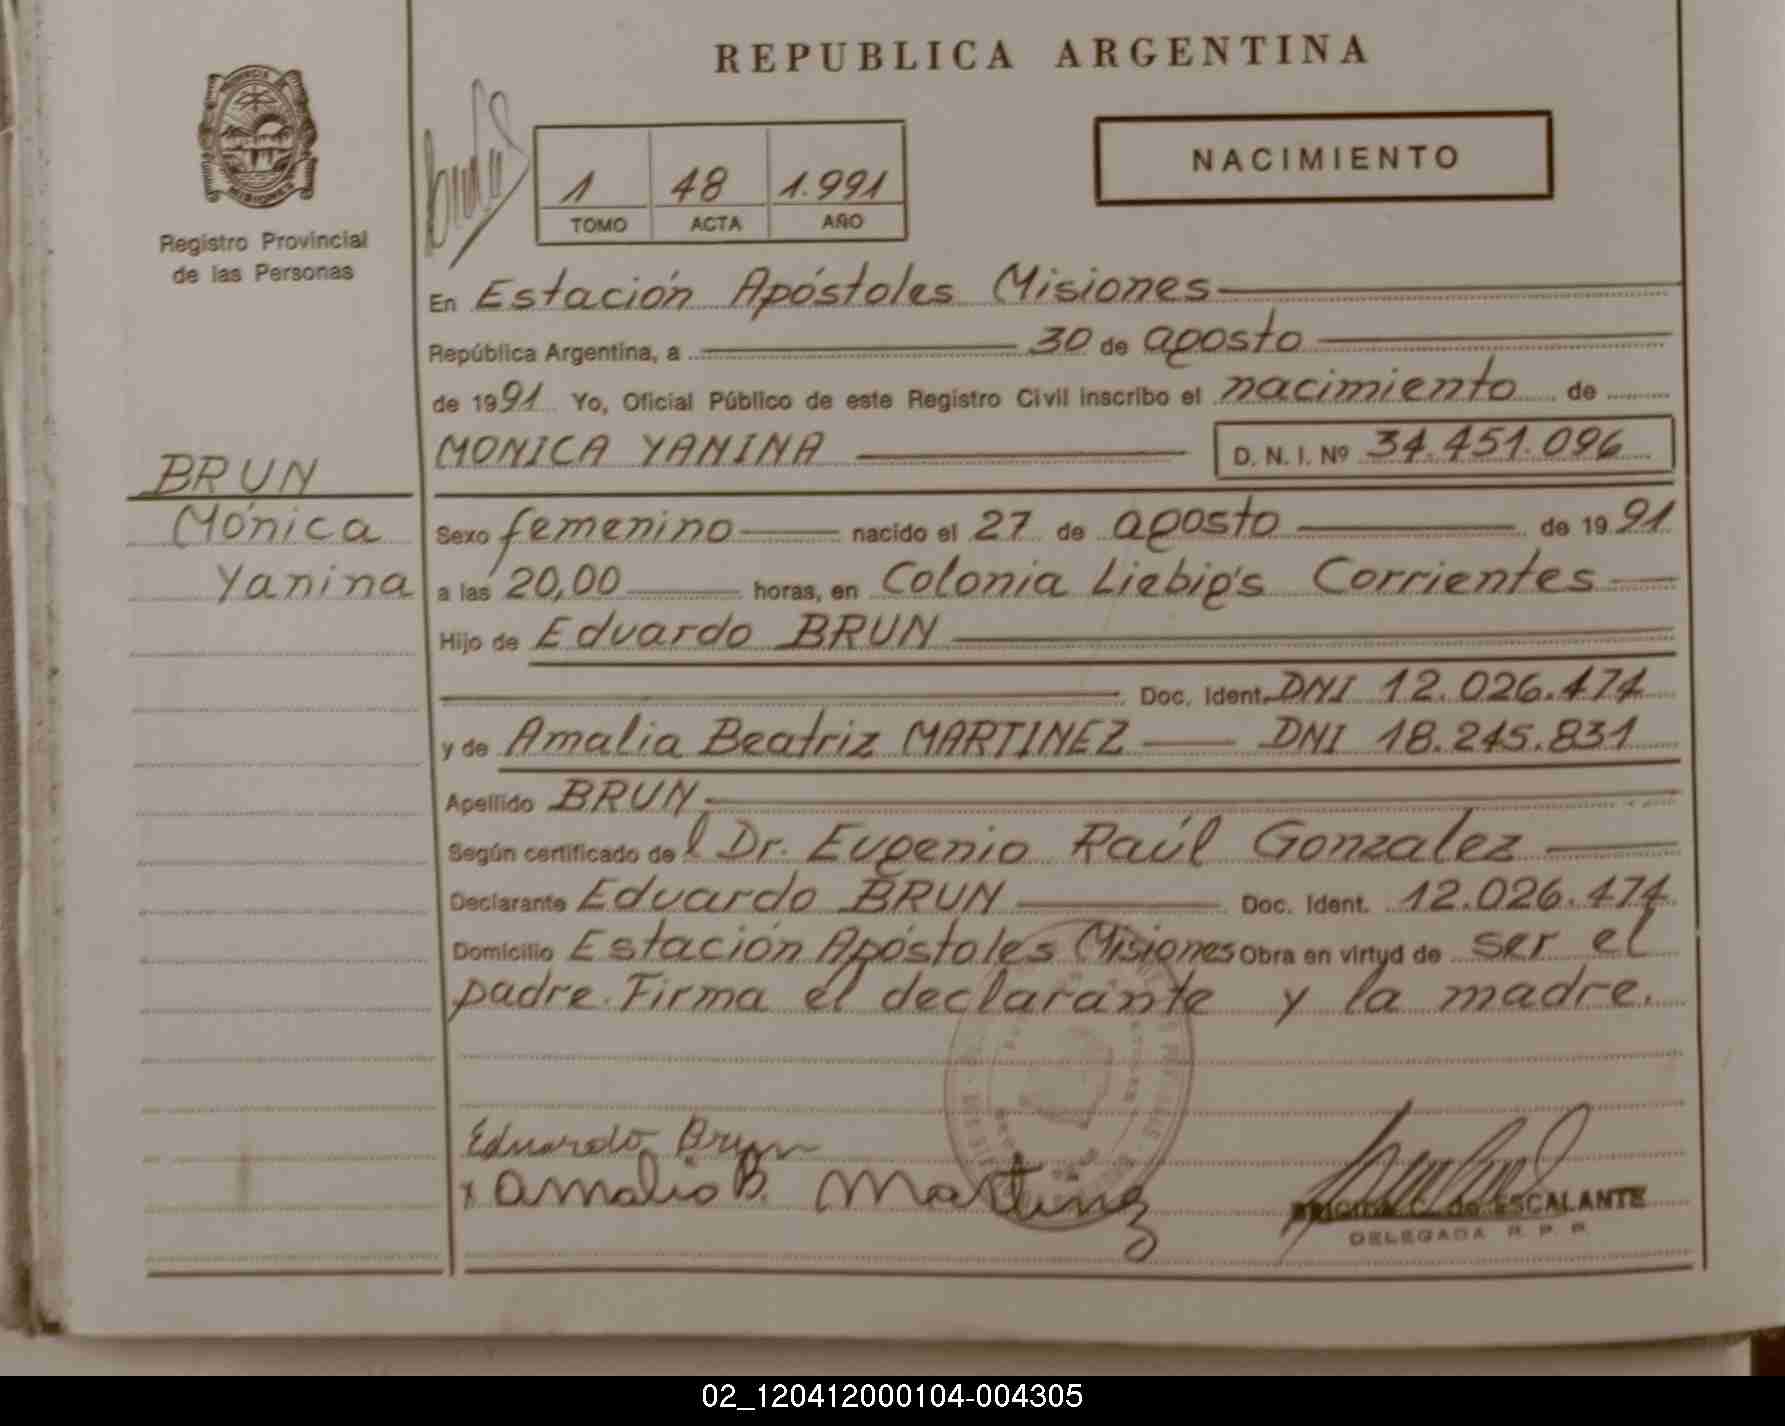 REPUBLICA ARGENTINA
PROVINCIA
MISIONES
Registro Provincial
de las Personas
1 48 1.991
TOMO ACTA AÑO
NACIMIENTO
En Estación Apóstoles Misiones
República Argentina, a 30 de agosto
de 1991 Yo, Oficial Público de este Registro Civil inscribo el nacimiento de
MONICA YANINA D. N. I. Nº 34.451.096
BRUN
Mónica
Yanina
Sexo femenino nacido el 27 de agosto de 1991
a las 20,00 horas, en Colonia Liebig's Corrientes
Hijo de Eduardo BRUN
Doc. Ident. DNI 12.026.474
y de Amalia Beatriz MARTINEZ DNI 18.245.831
Apellido BRUN
Según certificado del Dr. Eugenio Raúl Gonzalez
Declarante Eduardo BRUN Doc. Ident. 12.026.474
Domicilio Estación Apóstoles Misiones Obra en virtud de ser el
padre. Firma el declarante y la madre.
Eduardo Brun
x Amalia B. Martinez
C. de ESCALANTE
DELEGADA R. P. P.
02_120412000104-004305